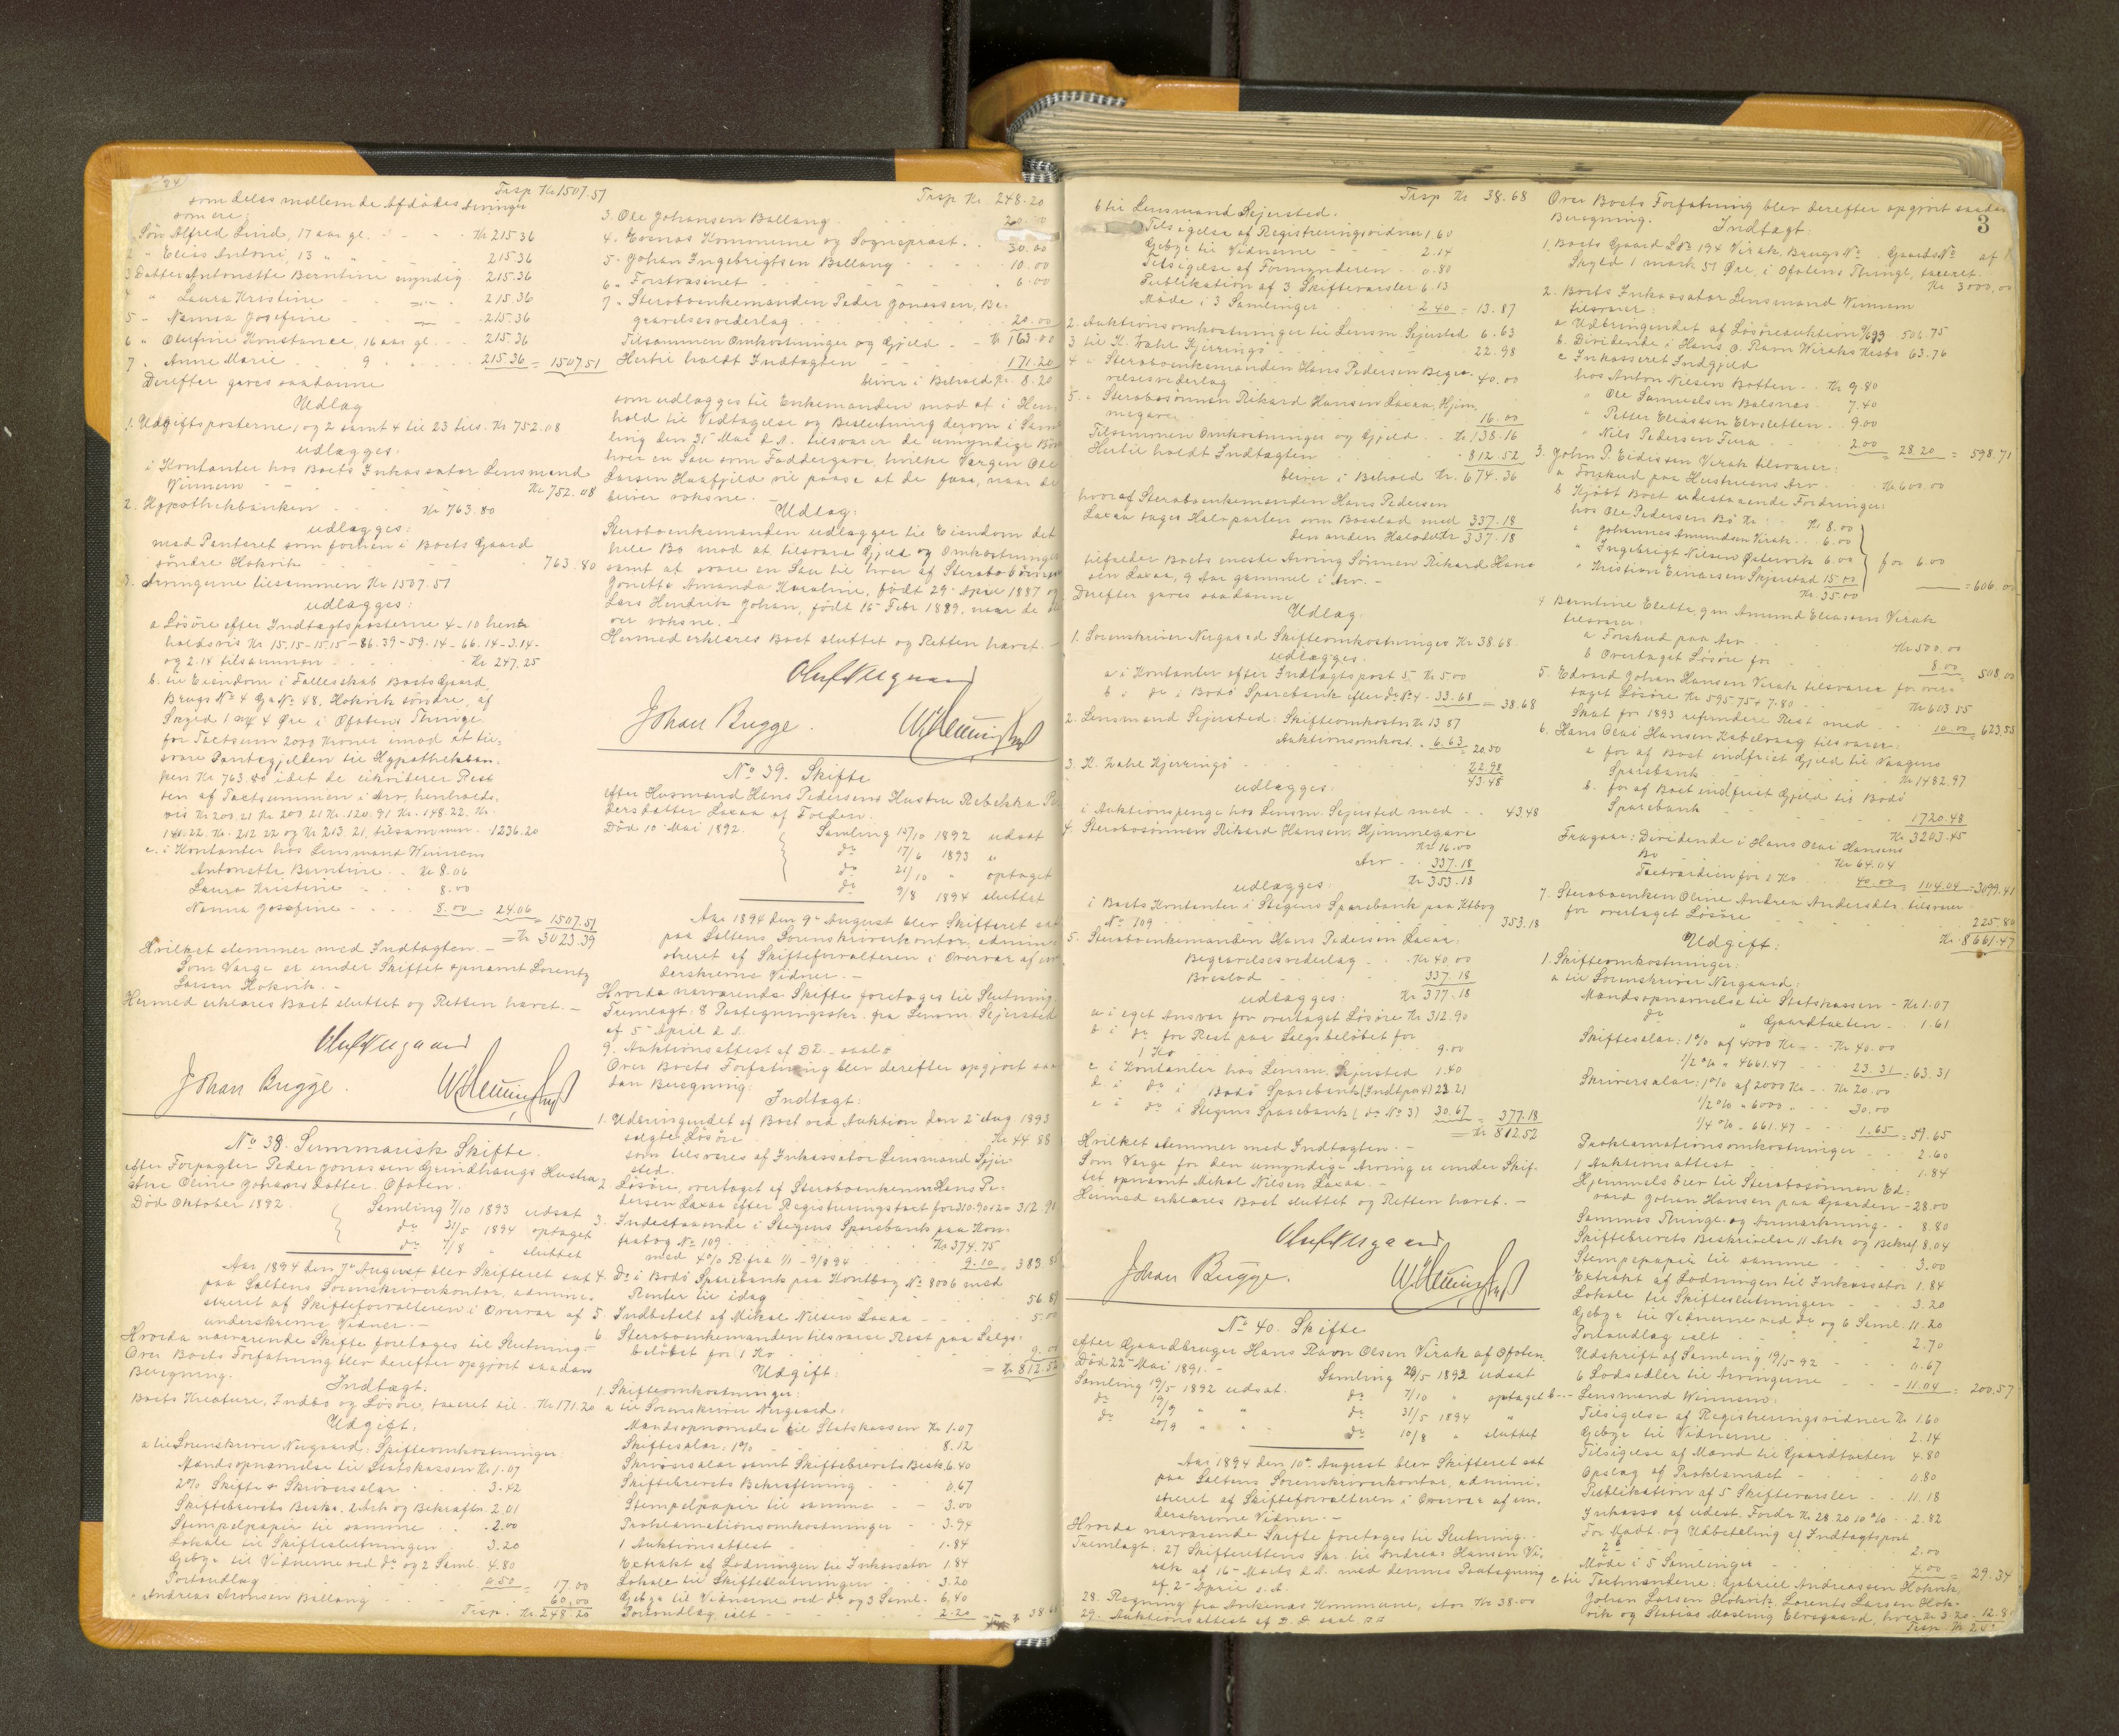 Trsp Kr 1507.51
som deles mellem de Afdødes Arvinger
som ere:
Søn Alfred Lind, 17 aar gl. Kr 215.36
2 " Elias Antoni, 13 " " 215.36
3 Datter Antonette Berntine myndig 215.36
4 " Laura Kristine 215.36
5 " Nanna Josefine 215.36
6 " Olufine Konstance, 16 aar gl. 215.36
7 " Anne Marie 9 215.36 = 1507.51
Derefter gaves saadanne
Udlæg
1. Udgiftsposterne 1 og 2 samt 4 til 23 tils. Kr 752.08
udlægges:
i Kontanter hos Boets Inkassator Lensmand
Winnem Kr 752.08
2. Hypothekbanken Kr 763.80
udlægges:
med Panteret som forhen i Boets Gaard
søndre Hokvik 763.80
3. Arvingerne tilsammen Kr 1507.51
udlægges:
a Løsøre efter Indtægtsposterne 4-10 hen
holdsvis Kr 15.15-15.15-86.39-59.14-66.14-3.14-
og 2.14 tilsammen Kr 247.25
b. til Eiendom i Fællesskab Boets Gaard,
Brugs No 4 Ga No 48, Hokvik søndre, af
Skyld 1 4 Øre i Ofotens Thinge
for Taxtsum 2000 Kroner imod at til-
svare Pantegjælden til Hypothekban-
ken Kr 763.80 idet de likviderer Res-
ten af Taxtsummen i Arv, henholds-
vis Kr 200.21 Kr 200.21 Kr 120.91 Kr. 148.22. Kr.
141.22. Kr. 212.22 og Kr 213.21, tilsammen 1236.20
c. i Kontanter hos Lensmand Winnem
Antonette Berntine Kr 8.06
Laura Kristine 8.00
Nanna Josefine 8.00 = 24.06
= 1507.51
= Kr 3023.39
Hvilket stemmer med Indtægten. -
Som Værge er under Skiftet opnævnt Lorentz
Larsen Hokvik. -
Hermed erklæres Boet sluttet og Retten hævet. -
Johan Bugge.
No 38. Summarisk Skifte.
efter Forpagter Peder Jonassen Grindhaugs Hustru
Oline Johansdatter. Ofoten.
Død Oktober 1892.
Samling 7/10 1893 udsat
do 31/5 1894 optaget
do 7/8 " sluttet
Aar 1894 den 7de August blev Skifteret sat
paa Saltens Sorenskriverkontor, admini-
streret af Skifteforvalteren i Overvær af
underskrevne Vidner. -
Hvorda nærværende Skifte foretages til Slutning-
Over Boets Forfatning blev derefter opgjort saadan
Beregning.
Indtægt.
Boets Kreature, Indbo og Løsøre, taxeret til Kr 171.20
Udgift.
a til Sorenskriver Nergaard: Skifteomkostninger:
Mandsopnævnelse til Statskassen Kr 1.07
2% Skifte & Skriversalær 3.42
Skiftebrevets Beskr. 2 Ark og Bekræftn. 2.01
Stempelpapir til samme 2.00
Lokale til Skifteslutningen 3.20
Gebyr til Vidnerne ved do og 2 Saml. 4.80
Portoudlæg 0.50 = 17.00
Andreas Aronsen Ballang 60.00
Trsp. Kr 248.20
Trsp Kr. 248.20
3. Ole Johansen Ballang 20.00
4. Evenæs Kommune og Sogneprest 30.00
5. Johan Ingebrigtsen Ballang 10.00
6. Forstvæsenet 6.00
7. Sterboenkemanden Peder Jonassen, Be-
gravelsesvederlag 20.00
Tilsammen Omkostninger og Gjæld Kr 163.00
Hertil holdt Indtægten 171.20
bliver i Behold Kr. 8.20
som udlægges til Enkemanden mod at i Hen-
hold til Vedtagelse og Beslutning derom i Sam-
ling den 31 Mai d.A. tilsvarer de umyndige Børn
hver en Sau som Faddergave, hvilke Værgen Ole
Larsen Haafjeld vil paase at de faar, naar de
bliver voksne. -
Udlæg:
Sterboenkemanden udlægges til Eiendom det
hele Bo mod at tilsvare Gjæld og Omkostninger
samt at svare en Sau til hver af Sterbobørnene
Jonette Amanda Karoline, født 29 April 1887 og
Lars Hendrik Johan, født 15 Febr 1889, naar de bli-
ver voksne. -
Hermed erklæres Boet sluttet og Retten hævet. -
Johan Bugge.
No 39. Skifte
efter Husmand Hans Pedersens Hustru Rebekka Pe-
dersdatter Laxaa af Folden.
Død 10 Mai 1892.
Samling 15/10 1892 udsat
do 17/6 1893 "
do 21/10 " optaget
do 9/8 1894 sluttet
Aar 1894 den 9de August blev Skifteret sat
paa Saltens Sorenskriverkontor, admini-
streret af Skifteforvalteren i Overvær af un-
derskrevne Vidner. -
Hvorda nærværende Skifte foretages til Slutning.
Fremlagt: 8 Paategningsskr. fra Lensm. Sejersted
af 5 April d.A.
9. Auktionsattest af D.D. saal.
Over Boets Forfatning blev derefter opgjort saa-
dan Beregning:
Indtægt:
1. Udbringendet af Boet ved Auktion den 2 Aug 1893
solgte Løsøre Kr 44.88
som tilsvares af Inkassator Lensmand Sejer-
sted.
2. Løsøre, overtaget af Sterboenkemanden Hans Pe-
dersen Laxaa efter Registreringstaxt for 310.90+2 = 312.90
3. Indestaaende i Stegens Sparebank paa Kon-
trabog No 109 Kr 374.75
med 4% R. fra 1/1 - 9/8 94 9.10 = 383.85
4. Do i Bodø Sparebank paa Kontbog No 8006 med
Renter til idag 56.89
5. Indbetalt af Mikal Nilsen Laxaa 5.00
6 Sterboenkemanden tilsvarer Rest paa Salgs-
beløbet for 1 Ko 9.00
= Kr 812.52
Udgift:
1. Skifteomkostninger:
a til Sorenskriver Nergaard:
Mandsopnævnelse til Statskassen Kr 1.07
Skiftesalær: 1% 8.12
Skriversalær samt Skiftebrevets Besk. 6.40
Skiftebrevets Bekræftning 0.67
Stempelpapir til samme 3.00
Proklamationsomkostninger 3.94
1 Auktionsattest 1.84
Extrakt af Lodningen til Inkassator 1.84
Lokale til Skifteslutningen 3.20
Gebyr til Vidnerne ved do og 3 Saml. 6.40
Portoudlæg, ialt 2.20 = 38.68
Trsp Kr 38.68
b til Lensmand Sejersted.
Tilsigelse af Registreringsvidner 1.60
Gebyr til Vidnerne 2.14
Tilsigelse af Formynderen 0.80
Publikation af 3 Skiftevarsler 6.13
Møde i 3 Samlinger 2.40 = 13.87
2. Auktionsomkostninger til Lensm. Sejersted 6.63
3 til K. Zahl Kjerringø 22.98
4 " Sterboenkemanden Hans Pedersen Begra-
velsesvederlag 40.00
5. " Sterbosønnen Rikard Hansen Laxaa, Hjem-
megave 16.00
Tilsammen Omkostninger og Gjæld Kr. 138.16
Hertil holdt Indtægten 812.52
bliver i Behold Kr. 674.36
hvoraf Sterboenkemanden Hans Pedersen
Laxaa tages Halvparten som Boeslod med 337.18
Den anden Halvdel Kr 337.18
tilfalder Boets eneste Arving Sønnen Rikard Han-
sen Laxaa, 9 Aar gammel i Arv. -
Derefter gaves saadanne
Udlæg.
1. Sorenskriver Nergaard Skifteomkostninger Kr 38.68
udlægges.
a i Kontanter efter Indtægtspost 5 Kr 5.00
b " do i Bodø Sparebank efter do No 4 - 33.68 = 38.68
2. Lensmand Sejersted: Skifteomkostn Kr 13.87
Auktionsomkost. 6.63 = 20.50
3. K. Zahl Kjerringø 22.98
43.48
udlægges:
i Auktionspenge hos Lensm. Sejersted med 43.48
4. Sterbosønnen Rikard Hansen, Hjemmegave
Kr 16.00
Arv 337.18
Kr 353.18
udlægges:
i Boets Kontanter i Stegens Sparebank paa Ktbog
No 109 353.18
5. Sterboenkemanden Hans Pedersen Laxaa.
Begravelsesvederlag Kr 40.00
Boeslod 337.18
udlægges: Kr 377.18
a i eget Ansvar for overtaget Løsøre Kr 312.90
b i do for Rest paa Salgsbeløbet for
1 Ko 9.00
c i Kontanter hos Lensm. Sejersted 1.40
d i do i Bodø Sparebank (Indtpost) 23.21
e i do i Stegens Sparebank (do No 3) 30.67 = 377.18
= Kr 812.52
Hvilket stemmer med Indtægten. -
Som Værge for den umyndige Arving er under Skif-
tet opnævnt Mikal Nilsen Laxaa. -
Hermed erklæres Boet sluttet og Retten hævet. -
Johan Bugge.
No 40. Skifte
efter Gaardbruger Hans Ravn Olsen Virak af Ofoten.
Død 22 Mai 1891. -
Samling 19/5 1892 udsat. Samling 29/5 1892 udsat
do 19/9 " " do 7/10 " optaget
do 20/9 " " do 31/5 1894 "
do 10/8 " sluttet
Aar 1894 den 10de August blev Skifteret sat
paa Saltens Sorenskriverkontor, admini-
streret af Skifteforvalteren i Overvær af un-
derskrevne Vidner. -
Hvorda nærværende Skifte foretages til Slutning.
Fremlagt: 27 Skifterettens Skr. til Andreas Hansen Vi-
rak af 16 Marts d.A. med dennes Paategning
af 2 April s.A.
28. Regning fra Ankenæs Kommune, stor Kr 38.00
29. Auktionsattest af D.D. saal.
3
Over Boets Forfatning blev derefter opgjort saadan
Beregning.
Indtægt:
1. Boets Gaard LNo 194 Virak, Brugs No Gaards No af
Skyld 1 mark 51 Øre, i Ofotens Thingl, taxeret
Kr 3000.00
2. Boets Inkassator Lensmand Winnem
tilsvarer:
a Udbringendet af Løsøreauktion 506.75
b. Dividende i Hans O. Ravn Wiraks Kesbo 63.76
c Inkasseret Indgjæld
hos Anton Nilsen Botten Kr 9.80
" Ole Samuelsen Balsnes 7.40
" Petter Eliassen Elvesletten 9.00
" Nils Pedersen Tura 2.00 = 28.20 = 598.71
3. John P. Eidissen Virak tilsvarer:
a Forskud paa Hustruens Arv Kr 600.00
b Kjøbt Boets udestaaende Fordringer:
hos Ole Pedersen Bø Kr Kr 8.00
" Johannes Amundsen Virak 6.00
" Ingebrigt Nilsen Østervik 6.00 for 6.00
" Kristian Einarsen Skjerstad 15.00
Kr. 35.00 = 606.00
4 Berntine Elette, gm Amund Eliassen Virak
tilsvarer:
a Forskud paa Arv Kr 500.00
b Overtaget Løsøre for 8.00 = 508.00
5. Edvard Johan Hansen Virak tilsvarer for over-
taget Løsøre Kr 595.75+7.80 Kr 603.55
Skat for 1893 refundere Rest med 10.00 = 623.55
6. Hans Olai Hansen Kabelvaag tilsvarer:
a for af Boet indfriet Gjæld til Vaagens
Sparebank Kr 1482.97
b. for af Boet indfriet Gjæld til Bodø
Sparebank 1720.48
Kr 3203.45
Fragaar: Dividende i Hans Olai Hansens
Bo Kr 64.04
Taxtværdien for 1 Ko 40.00 = 104.04 = 3099.41
7. Sterboenken Oline Andrea Andersdtr. tilsvarer
for overtaget Løsøre 225.80
Kr. 8661.47
Udgift:
1. Skifteomkostninger:
a til Sorenskriver Nergaard:
Mandsopnævnelse til Statskassen - Kr 1.07
do " Gaardtaxten 1.61
Skiftesalær: 1% af 4000 Kr = Kr 40.00
1/2% " 4661.47 23.31 = 63.31
Skriversalær: 1% af 2000 Kr Kr 20.00
1/2% " 6000 " 30.00
1/4% " 661.47 1.65 = 51.65
Proklamationsomkostninger 2.60
1 Auktionsattest 1.84
Hjemmelsbrev til Sterbosønnen Ed-
vard Johan Hansen paa Gaarden 28.00
Sammes Thingl. og Anmærkning 8.80
Skiftebrevets Beskrivelse 11 Ark og Bekræf 8.04
Stempelpapir til samme 3.00
Extrakt af Lodningen til Inkassator 1.84
Lokale til Skifteslutningen 3.20
Gebyr til Vidnerne ved do og 6 Saml. 11.20
Portoudlæg ialt 2.70
Udskrift af Samling 19/5-92 0.67
6 Lodsedler til Arvingerne 11.04 = 200.57
b Lensmand Winnem:
Tilsigelse af Registreringsvidner Kr 1.60
Gebyr til Vidnerne 2.14
Tilsigelse af Mænd til Gaardtaxten 4.80
Opslag af Proklamaet 0.80
Publikation af 5 Skiftevarsler 11.18
Inkasso af udest. Fordr Kr 28.20 10% 2.82
For Modt. og Udbetaling af Indtægtspost
2 b 2.00
Møde i 5 Samlinger 4.00 = 29.34
c til Taxtmændene: Gabriel Andreassen Hokvik,
Johan Larsen Hokvik, Lorents Larsen Hok-
vik og Statius Mosling Elvegaard, hver Kr 3.20 = 12.80
Trsp. Kr